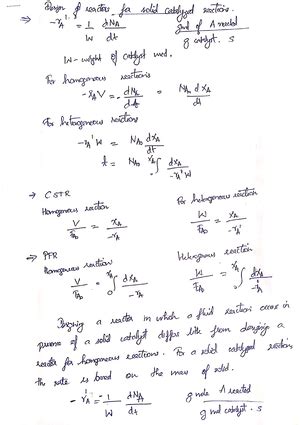 Design of reactors for solid catalyzed reactions.
⇒ -r_A' = 1/W dN_A/dt mol of A reacted / g catalyst . s
W - weight of catalyst used.
For homogeneous reactions
-r_A V = -dN_A/dt = N_A0 dX_A/dt
For heterogeneous reactions
-r_A' W = N_A0 dX_A/dt
t = N_A0 ∫ dX_A / -r_A' W
→ CSTR
Homogeneous reaction For heterogeneous reaction
V/F_A0 = X_A/-r_A W/F_A0 = X_A/-r_A'
→ PFR
Homogeneous reaction Heterogeneous reaction
V/F_A0 = ∫ dX_A/-r_A W/F_A0 = ∫ dX_A/-r_A'
a reactor in which a fluid reaction occurs in
presence of a solid catalyst differs little from designing a
reactor for homogeneous reactions. For a solid catalyzed reaction,
the rate is based on the mass of solid.
-r_A' = -1/W dN_A/dt g mole A reacted / g catalyst . s